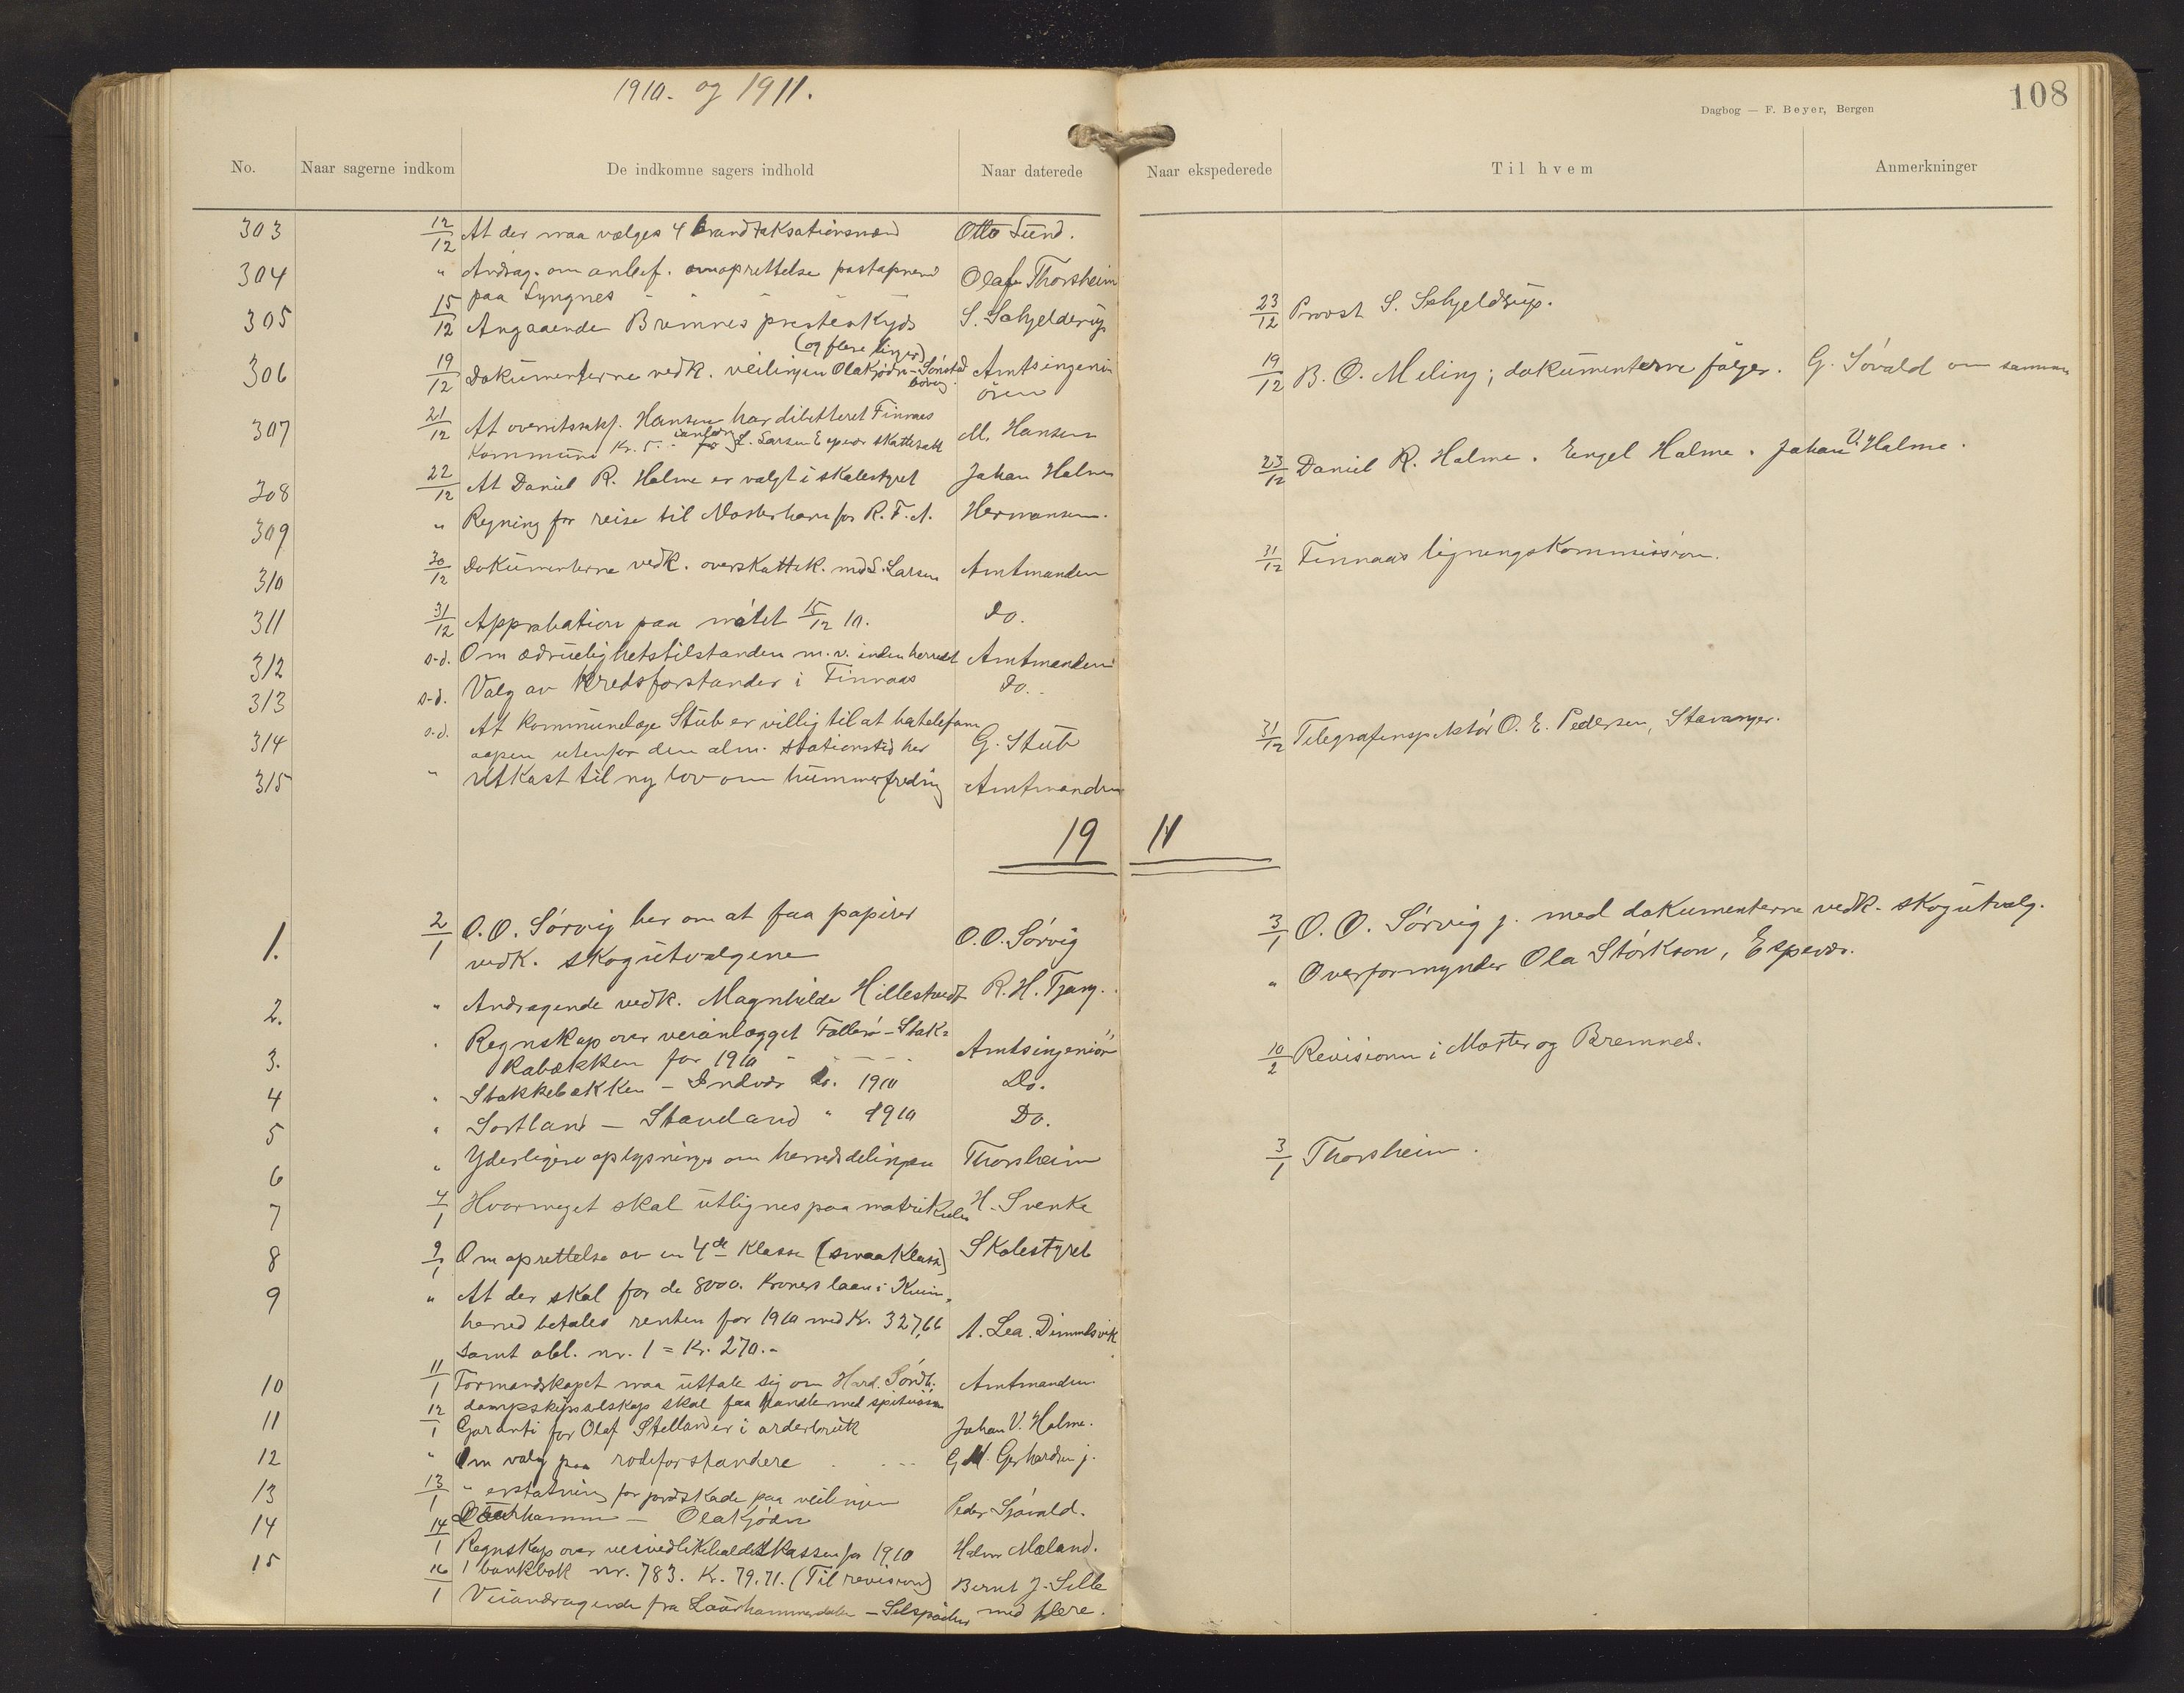 1910. og 1911.
108
Dagbog — F. Beyer, Bergen
No. Naar sagerne indkom De indkomne sagers indhold Naar daterede Naar ekspederede Til hvem Anmerkninger
303 12/12 At der maa vælges 4 brandtaksationsmænd Otto Lund.
304 " Andrag. om anbef. om oprettelse postaapneri Olaf Thorsheim
paa Lyngnes
305 15/12 Angaaende Bremnes presteskyds S. Schjelderup 23/12 Provst S. Schjeldrup.
(og flere linjer)
306 19/12 Dokumenterne vedk. veilinjen Olakjødn - Amtsingeni- 19/12 B. O. Meling; dokumenterne følger. G. Søvald om samme
øren
307 21/12 At overretssakf. Hansen har debitteret Finnaas M. Hansen
kommune Kr. 5.- L. Larsen Espevær skattesak
308 22/12 At Daniel R. Holme er valgt i skolestyret Johan Holme 23/12 Daniel R. Holme. Engel Holme. Johan V. Holme.
309 " Regning for reise til Mosterhavn for R.F.A. Hermansen.
310 30/12 Dokumenterne vedk. overskattek. med L. Larsen Amtmanden 31/12 Finnaas ligningskommission.
311 31/12 Approbation paa møtet 15/12 10. Do.
312 s.d. Om ædruelighetstilstanden m.v. inden herredet Amtmanden
313 s.d. Valg av kredsforstander i Finnaas Do.
314 s.d. At kommunelæge Stub er villig til at ha telefon G. Stub 31/12 Telegrafinspektør O. E. Pedersen, Stavanger.
aapen utenfor den alm. stationstid her
315 " Utkast til ny lov om hummerfredning Amtmanden
19 11
1. 2/1 O. O. Sørvig ber om at faa papirer O. O. Sørvig 3/1 O. O. Sørvig j. med dokumenterne vedk. skogutvalg.
vedk. skogutvalgene
2. " Andragende vedk. Magnhilde Hillestvedt R. H. Tjong. " Overformynder Ola Størkson, Espevær.
3. " Regnskap over veianlægget Følle - Stak- Amtsingeniør 10/2 Revisionen i Moster og Bremnes.
kabækken for 1910
4 " Stakkebækken - Indvær do. 1910 Do.
5 " Sortland - Stavland " 1910 Do.
6 " Yderligere oplysninger om herredsdelingen Thorsheim 3/1 Thorsheim.
7 4/1 Hvormeget skal utlignes paa matrikulen H. Svenke
8 9/1 Om oprettelse av en 4de klasse (smaaklasse) Skolestyret
9 " At der skal for de 8000. kroners laan i Kvin-
herred betales renten for 1910 med Kr. 327,66 A. Lea. Dimmelsvik
samt obl. nr. 1 = Kr. 270.-
10 11/1 Formandskapet maa uttale sig om Hard. Søndh. Amtmanden
dampskipsselskap skal faa handle med spirituosa
11 12/1 Garanti for Olaf Stellander i arderbruk Johan V. Holme.
12 " Om valg paa rodeforstandere G. M. Gerhardsen j.
13 13/1 " erstatning for jordskade paa veilinjen Peder Sjøvald.
Olakjødn
14 14/1 Regnskap over veivedlikeholdelskassen for 1910 Halvor Mæland.
1 bankbok nr. 783. Kr. 79.71. (Til revision)
15 16/1 Veiandragende fra Laurhammerdalen - Bernt J. Selle
med flere.